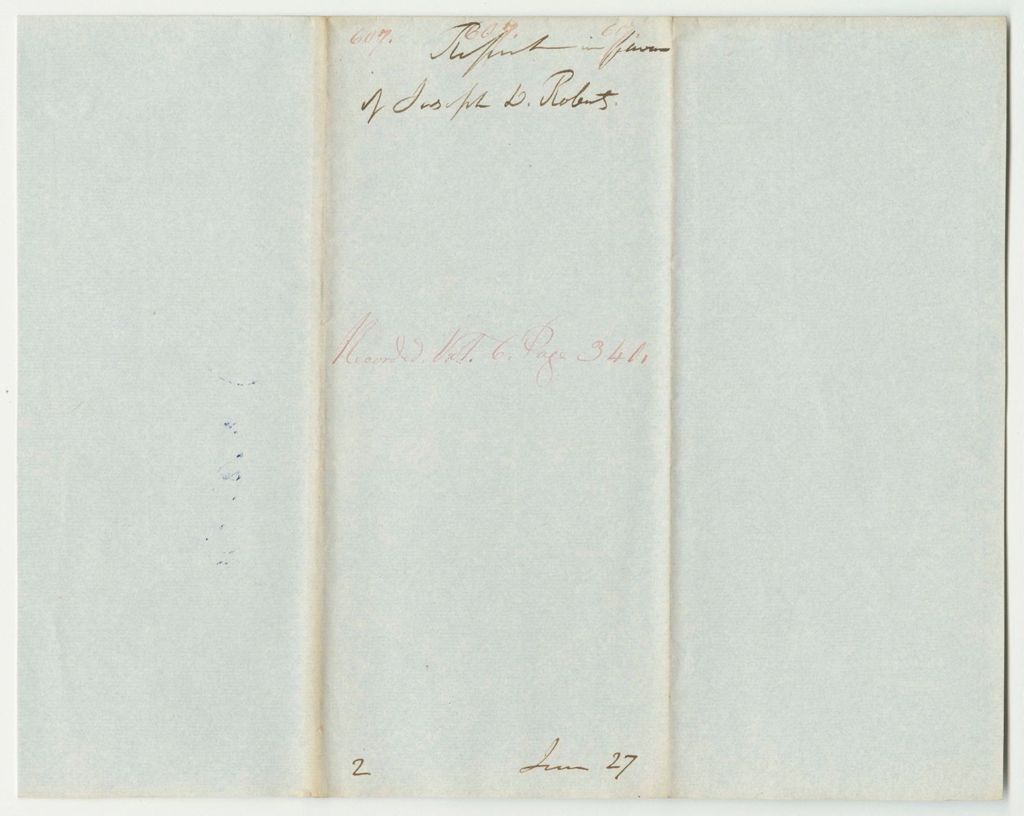 607. 607. 607.
Report in favor
of Joseph D. Roberts.
Recorded Vol. 6. Page 341.
2 June 27